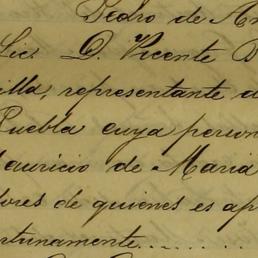 Pedro de An
Lic. D. Vicente B
illa, representante d
Puebla cuya person
auricio de Maria
dores de quienes es ap
rtunamente........